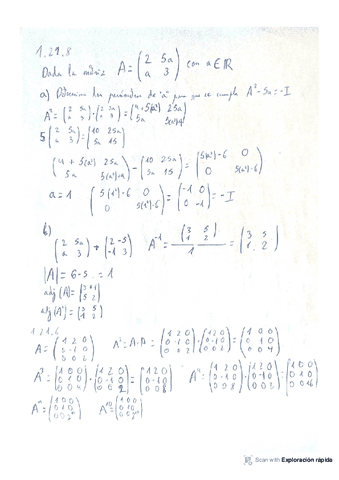 1.21.8
Dada la matriz A = (2 5a / a 3) con a∈ℝ
a) Determina los parámetros de "a" para que se cumpla A² - 5a = -I
A² = (2 5a / a 3)·(2 5a / a 3) = (4+5(a²) 25a / 5a 5(a²)+9)
5(2 5a / a 3) = (10 25a / 5a 15)
(4+5(a²) 25a / 5a 5(a²)+9) - (10 25a / 5a 15) = (5(a²)-6 0 / 0 5(a²)-6)
a = 1 (5(1²)-6 0 / 0 5(1²)-6) = (-1 0 / 0 -1) = -I
b)
(2 5a / a 3) → (2 -5 / -1 3) A⁻¹ = (3 5 / 1 2) / 1 = (3 5 / 1 2)
|A| = 6-5 = 1
adj(A) = (3 1 / 5 2)
adj(Aᵗ) = (3 5 / 1 2)
1.21.6
A = (1 2 0 / 0 -1 0 / 0 0 2) A² = A·A = (1 2 0 / 0 -1 0 / 0 0 2)·(1 2 0 / 0 -1 0 / 0 0 2) = (1 0 0 / 0 1 0 / 0 0 4)
A³ = (1 0 0 / 0 1 0 / 0 0 4)·(1 2 0 / 0 -1 0 / 0 0 2) = (1 2 0 / 0 -1 0 / 0 0 8) A⁴ = (1 2 0 / 0 -1 0 / 0 0 8)·(1 2 0 / 0 -1 0 / 0 0 2) = (1 0 0 / 0 1 0 / 0 0 16)
Aⁿ = (1 0 0 / 0 1 0 / 0 0 2ⁿ) A¹⁰ = (1 0 0 / 0 1 0 / 0 0 2¹⁰)
Scan with Exploración rápida